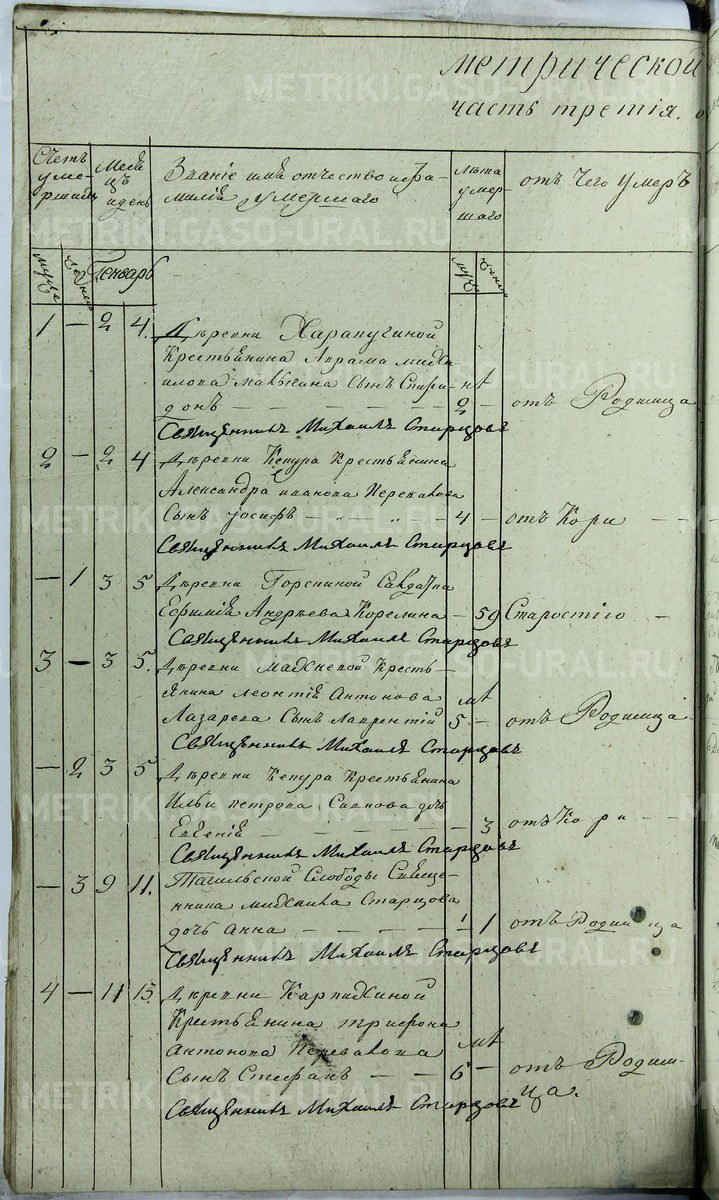 метрической
часть третія.
Счетъ умершихъ
Месяцъ и день
Званіе имя отчество и фамилія умершаго
лѣта умершаго
отъ чего умеръ
муж
жен
Генварь
муж
жен
1 — 2 4. Деревни Харапугиной
Крестьянина Аврама Миха
илова Мавкина Сынъ Спири-
донъ — 2 — отъ Родимца
Священникъ Михаилъ Старцовъ
2 — 2 4 Деревни Кепура Крестьянина
Александра Иванова Перевалова
Сынъ Іосифъ — 4 — отъ Кори
Священникъ Михаилъ Старцовъ
— 1 3 5 Деревни Горсткиной Солдатка
Ефимія Андрѣева Корелина — 59 Старостію
Священникъ Михаилъ Старцовъ
3 — 3 5. Деревни Махневой Кресть-
янина Леонтія Антонова
Лазарева Сынъ Лаврентій 5 — отъ Родимца
Священникъ Михаилъ Старцовъ
— 2 3 5 Деревни Кепура Крестьянина
Ильи Петрова дочь
Евгенія — 3 отъ Кори
Священникъ Михаилъ Старцовъ
— 3 9 11. Тагильской Слободы Свяще-
нника Михаила Старцова
дочь Анна — 1 отъ Родимца
Священникъ Михаилъ Старцовъ
4 — 11 13. Деревни Карпихиной
Крестьянина Трифона
Антонова Перевалова
Сынъ Стефанъ — 6 — отъ Родим-
ца.
Священникъ Михаилъ Старцовъ
METRIKI.GASO-URAL.RU